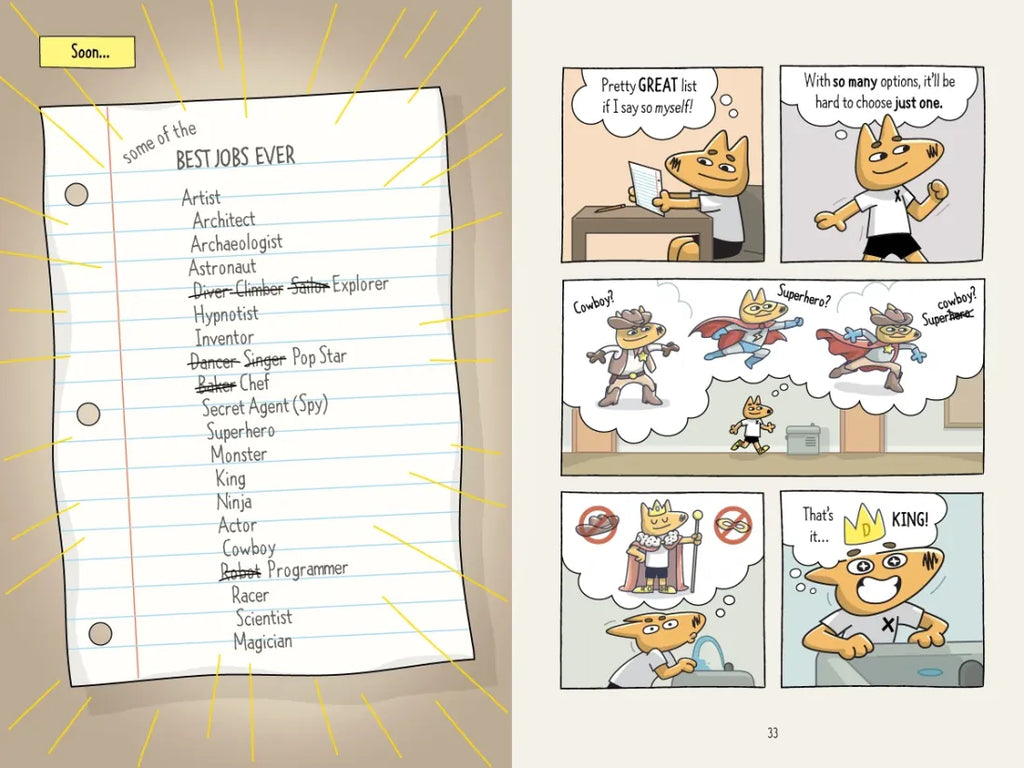 Soon...
some of the
BEST JOBS EVER
Artist
Architect
Archaeologist
Astronaut
Diver Climber Sailor Explorer
Hypnotist
Inventor
Dancer Singer Pop Star
Baker Chef
Secret Agent (Spy)
Superhero
Monster
King
Ninja
Actor
Cowboy
Robot Programmer
Racer
Scientist
Magician
Pretty GREAT list
if I say so myself!
X
With so many options, it'll be
hard to choose just one.
X
Cowboy?
Superhero?
cowboy?
Superhero
That's
it...
D
KING!
X
33